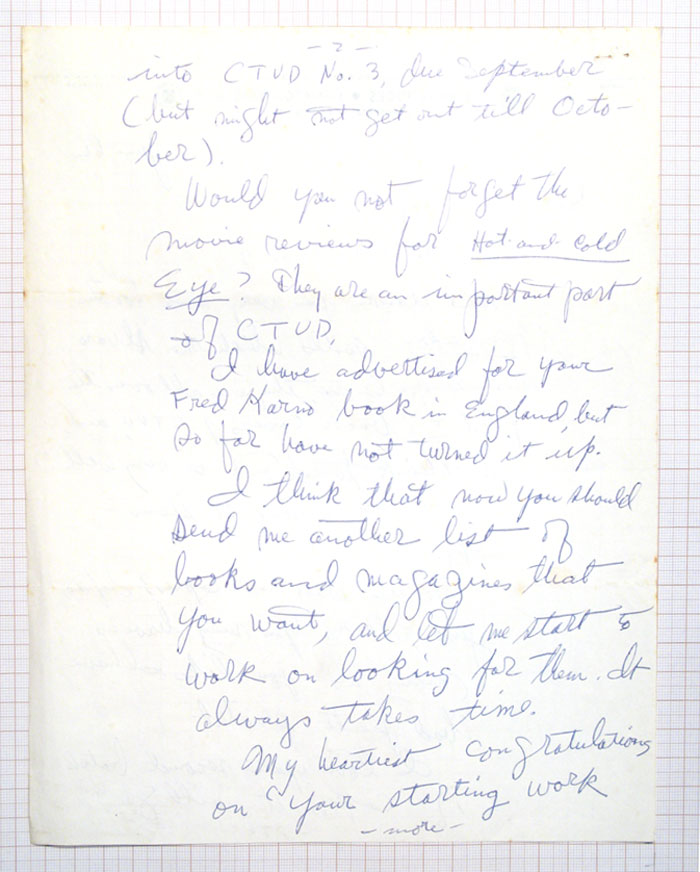 - 2 -
into CTVD No. 3, due September
(but might not get out till Octo-
ber).
Would you not forget the
movie reviews for Hot and Cold
Eye? They are an important part
of CTVD.
I have advertised for your
Fred Karno book in England, but
so far have not turned it up.
I think that now you should
send me another list of
books and magazines that
you want, and let me start to
work on looking for them. It
always takes time.
My heartiest congratulations
on your starting work
- more -